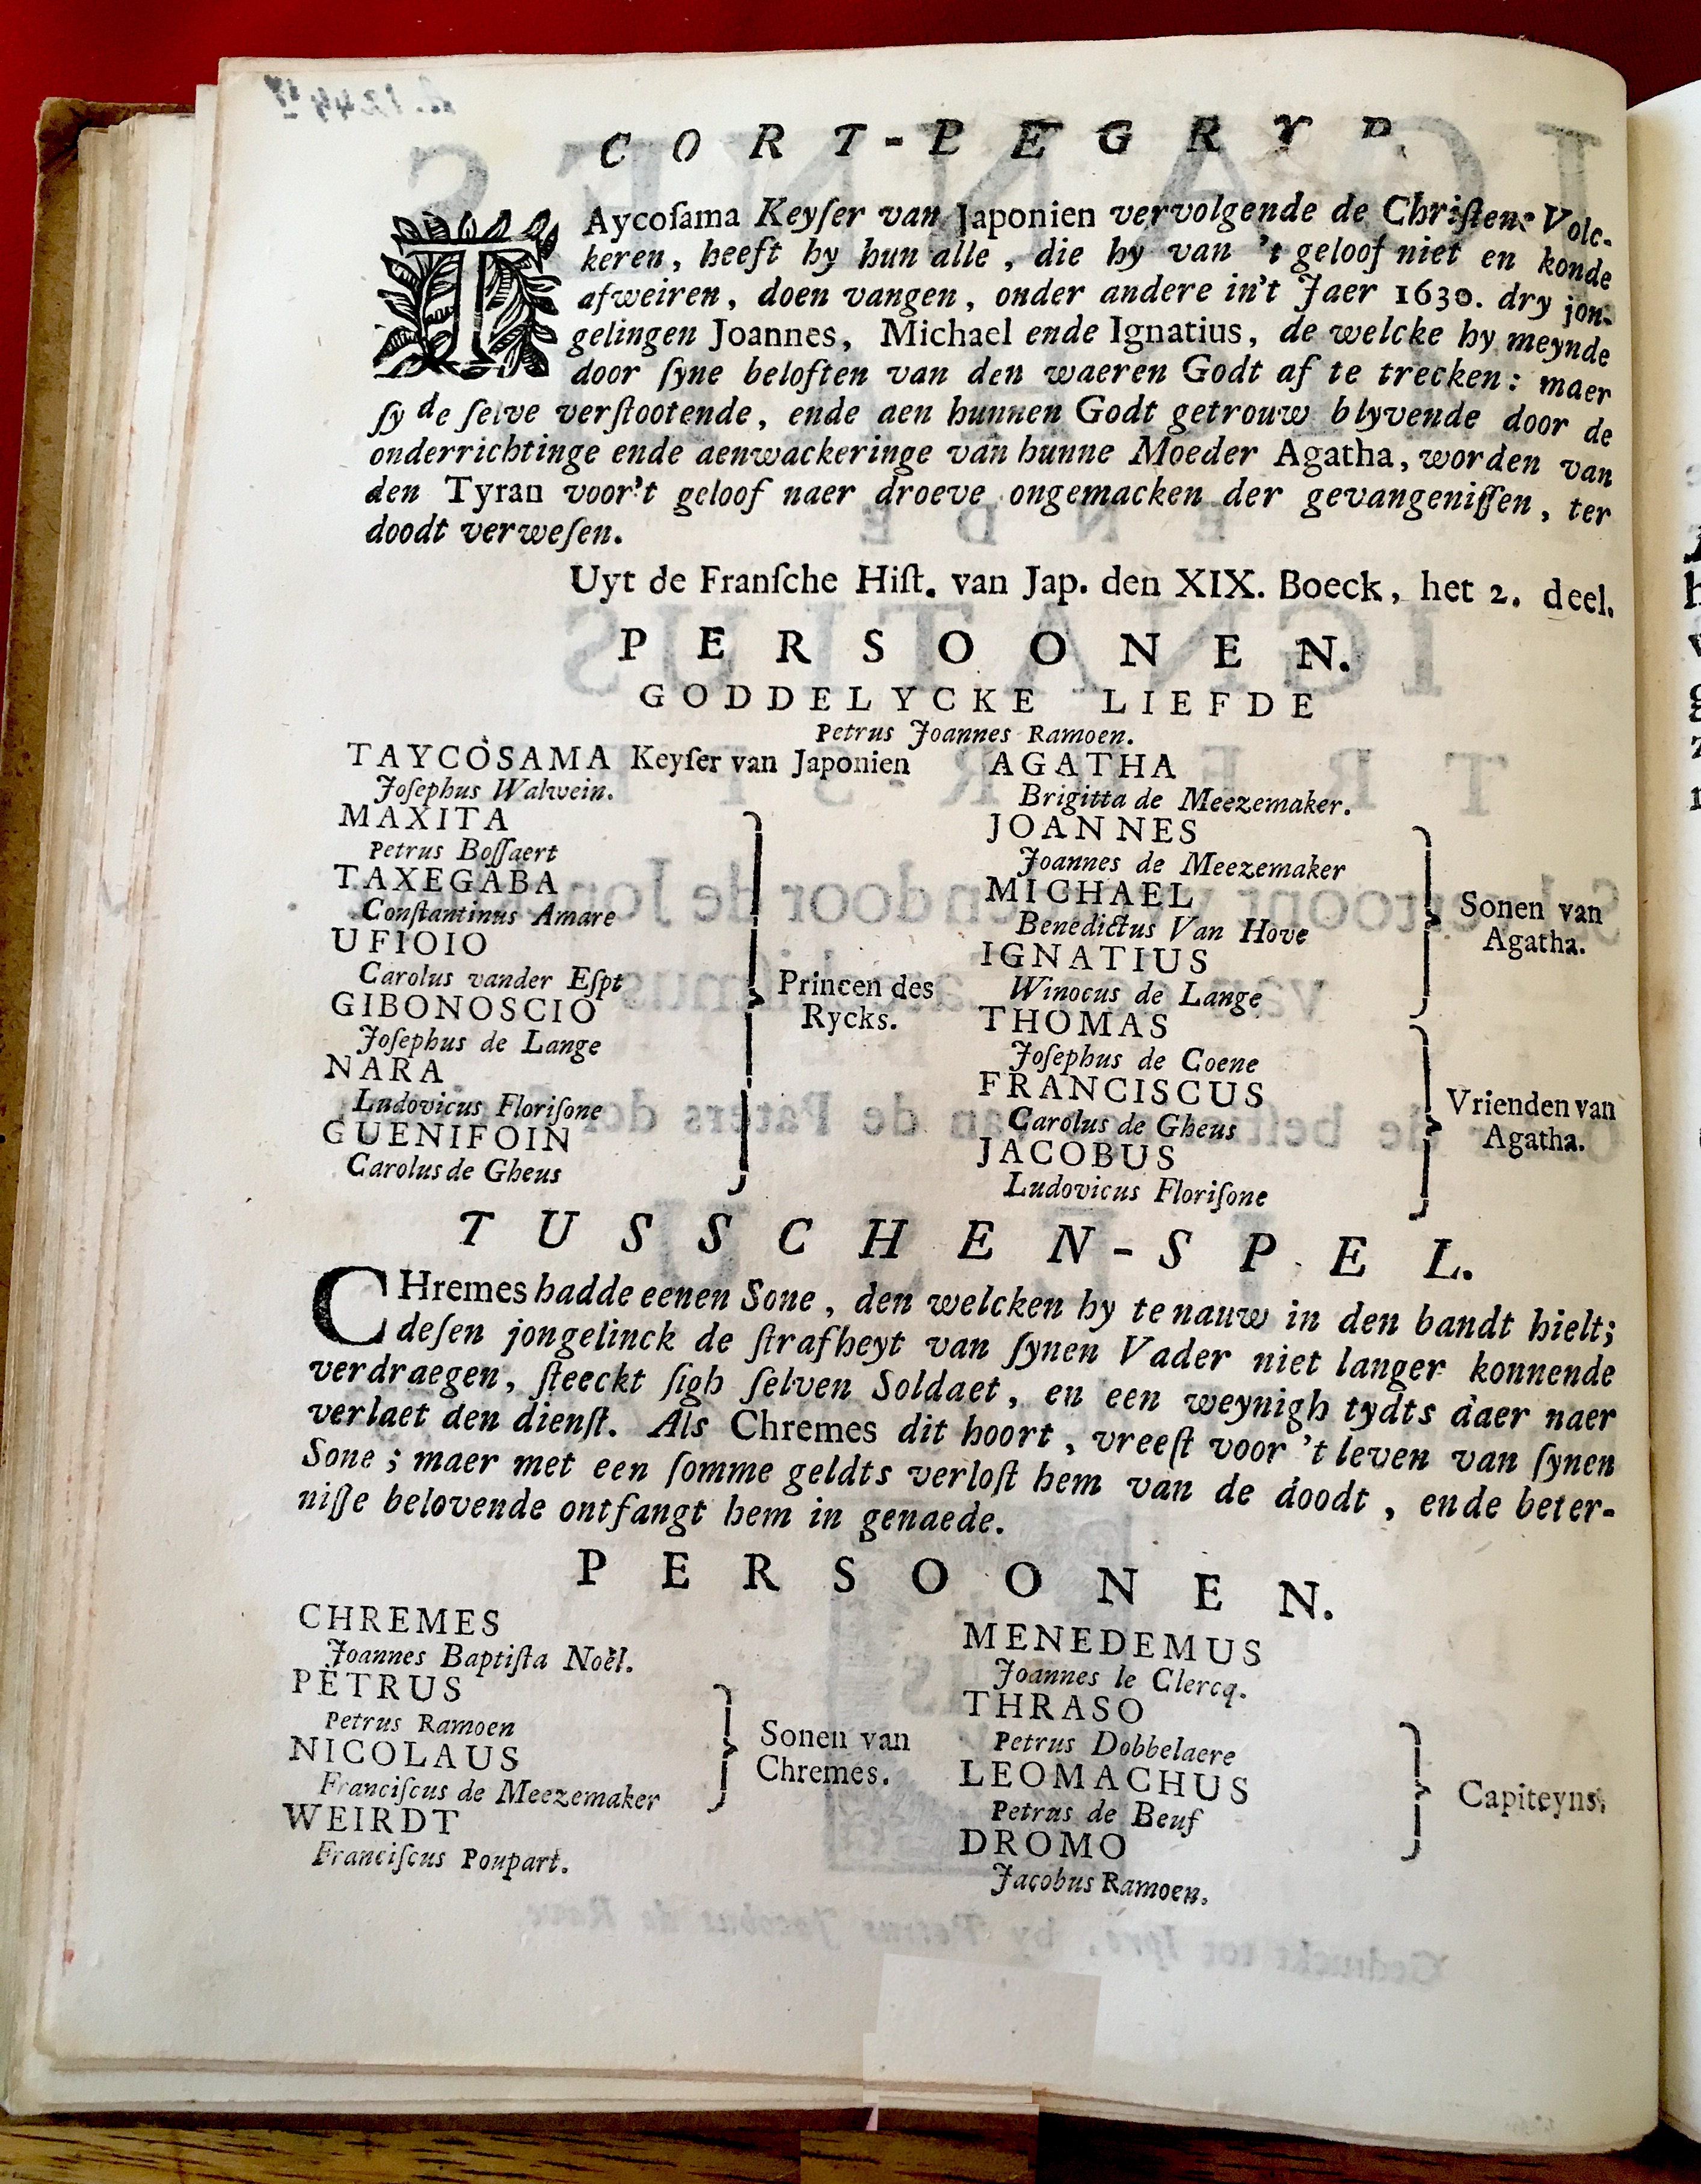 CORT-PEGRYP
TAycoſama Keyſer van Japonien vervolgende de Chriſtene Volc-
keren, heeft hy hun alle, die hy van 't geloof niet en konde
afweiren, doen vangen, onder andere in't Jaer 1630. dry jon-
gelingen Joannes, Michael ende Ignatius, de welcke hy meynde
door ſyne beloften van den waeren Godt af te trecken: maer
ſy de ſelve verſtootende, ende aen hunnen Godt getrouw blyvende door de
onderrichtinge ende aenwackeringe van hunne Moeder Agatha, worden van
den Tyran voor't geloof naer droeve ongemacken der gevangeniſſen, ter
doodt verweſen.
Uyt de Franſche Hiſt. van Jap. den XIX. Boeck, het 2. deel.
PERSOONEN.
GODDELYCKE LIEFDE
Petrus Joannes Ramoen.
TAYCOSAMA Keyſer van Japonien
Joſephus Walwein.
MAXITA
Petrus Boſſaert
TAXEGABA
Conſtantinus Amare
UFIOIO
Carolus vander Eſpt
GIBONOSCIO
Joſephus de Lange
NARA
Ludovicus Floriſone
GUENIFOIN
Carolus de Gheus
Princen des
Rycks.
AGATHA
Brigitta de Meezemaker.
JOANNES
Joannes de Meezemaker
MICHAEL
Benedictus Van Hove
IGNATIUS
Winocus de Lange
Sonen van
Agatha.
THOMAS
Joſephus de Coene
FRANCISCUS
Carolus de Gheus
JACOBUS
Ludovicus Floriſone
Vrienden van
Agatha.
TUSSCHEN-SPEL.
CHremes hadde eenen Sone, den welcken hy te nauw in den bandt hielt;
deſen jongelinck de ſtrafheyt van ſynen Vader niet langer konnende
verdraegen, ſteeckt ſigh ſelven Soldaet, en een weynigh tydts daer naer
verlaet den dienſt. Als Chremes dit hoort, vreeſt voor 't leven van ſynen
Sone; maer met een ſomme geldts verloſt hem van de doodt, ende beter-
niſſe belovende ontfangt hem in genaede.
PERSOONEN.
CHREMES
Joannes Baptiſta Noël.
PETRUS
Petrus Ramoen
NICOLAUS
Franciſcus de Meezemaker
Sonen van
Chremes.
WEIRDT
Franciſcus Poupart.
MENEDEMUS
Joannes le Clercq.
THRASO
Petrus Dobbelaere
LEOMACHUS
Petrus de Beuf
DROMO
Jacobus Ramoen.
Capiteyns.